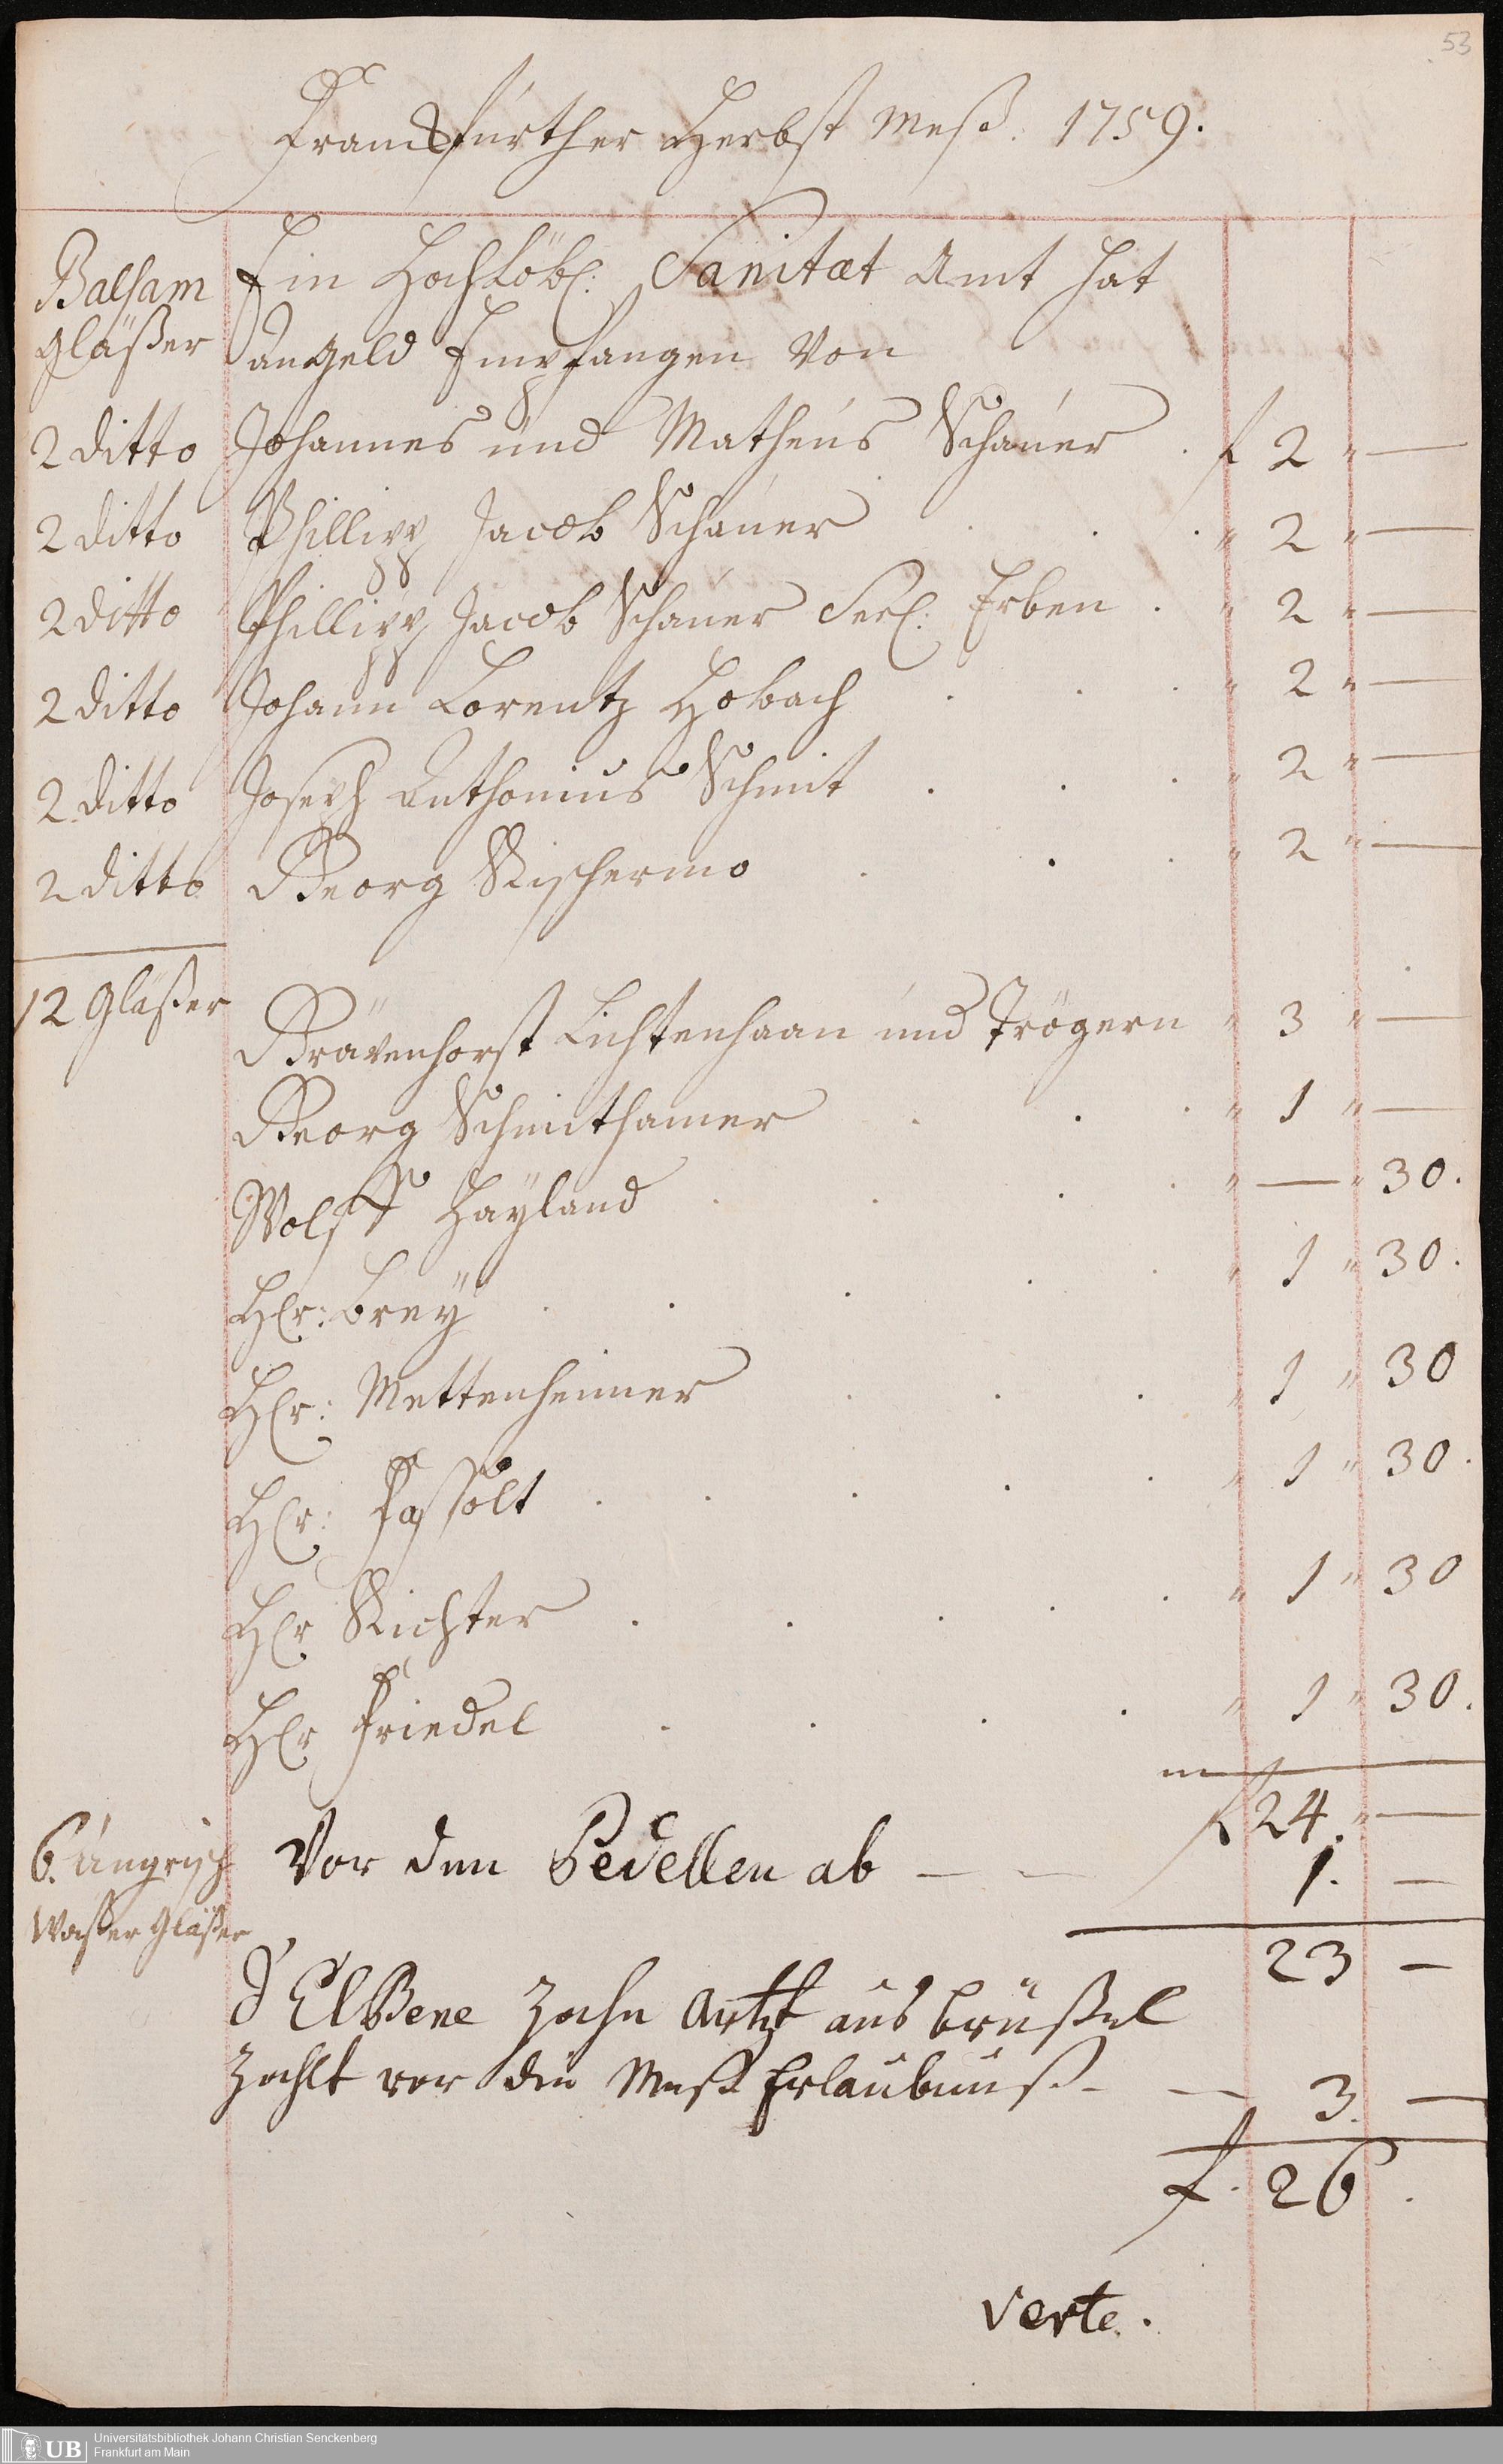 53
Franckfürther Herbst Meß. 1759.
Balsam
Gläßer
Ein Hochlöbl: Sanitæt Amt hat
an geld Empfangen Von
2 ditto Johannes und Matheus Schauer . f 2 " —
2 ditto Phillipp Jacob Schauer . . . " 2 " —
2 ditto Phillipp Jacob Schauer Seel: Erben . " 2 " —
2 ditto Johann Lorentz Hobach . . . " 2 " —
2 ditto Joseph Anthonius Schmit . . . " 2 " —
2 ditto Georg Rischermo . . . " 2 " —
12 Gläßer
Grävenhorst Lichtenhaan und Trögern " 3 " —
Georg Schmithamer . . . " 1 " —
Wolff Hayland . . . . " — " 30.
Hr: Brey . . . . . " 1 " 30.
Hr: Mettenheimer . . . " 1 " 30
Hr: Fassolt . . . . . " 1 " 30.
Hr Richter . . . . . " 1 " 30
Hr Friedel . . . . " 1 " 30.
f 24. " —
6. Ungrisch
Wasser Gläßer
Vor den Pedellen ab — — 1. —
23 —
d'Elbene Zahn Artzt aus Brüßel
zahlt vor die Meß Erlaubnuß — — 3. —
f. 26 .
verte.
UB Universitätsbibliothek Johann Christian Senckenberg
Frankfurt am Main